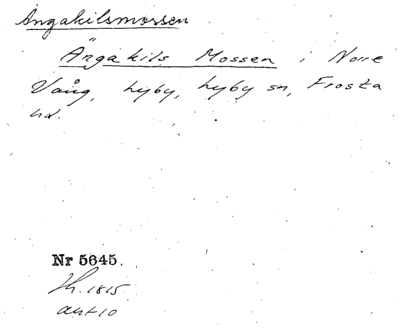 Ängakilsmossen
Ängakils Mossen i Norre
Vång, Lyby, Lyby sn, Frosta
hd.
Nr 5645.
Lh. 1815
akt 10